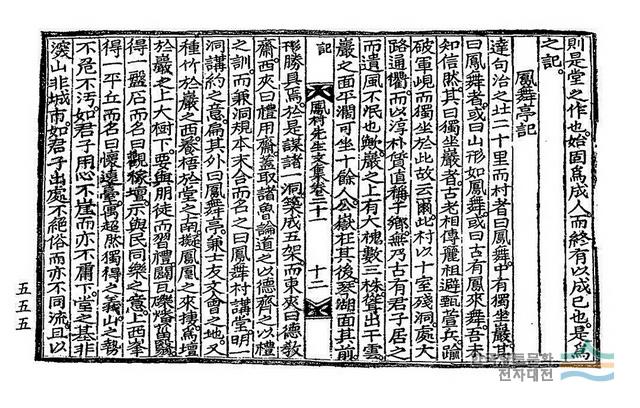 則是堂之作也。始固爲成人。而終有以成已也。是爲
之記。
鳳舞亭記
達句治之北二十里而村者曰鳳舞。中有獨坐巖。其
曰鳳舞者。或曰山形如鳳舞。或曰古有鳳來舞。吾未
知信然。其曰獨坐巖者。古老相傳麗祖避甄萱兵。踰
破軍峴而獨坐於此故云爾。此村以十室殘洞。處大
路通衢。而以淳朴直稱于鄕。無乃古有君子居之
而遺風不泯也歟。巖之上有大槐數三株。聳出干雲。
巖之面平濶可坐十餘人。公嶽在其後。琴湖面其前。
記 鳳村先生文集卷二十一 十二
形勝具焉。於是謀諸一洞。築成五架。而東夾曰德敎
齋。西夾曰禮用齋。蓋取諸魯論道之以德。齊之以禮
之訓。而兼洞規本末。合而名之曰鳳舞村講堂。明一
洞講約之意。扁其外曰鳳舞亭。兼士友文會之地。又
種竹於巖之西。養梧於堂之南。擬鳳凰之來棲。爲壇
於巖之上大樹下。要與朋徒而習禮。闢瓦礫。燔翳。
得一盤石而名曰觀稼壇。示與民同樂之意。上西峯
得一平丘而名曰懷遠臺。寓超然獨得之義。山之勢
不危不汚。如君子用心不崖而亦不庸下。堂之基非
深山非城市。如君子出處不絶俗而亦不同流。且以
五五五
한국향토문화
전자대전